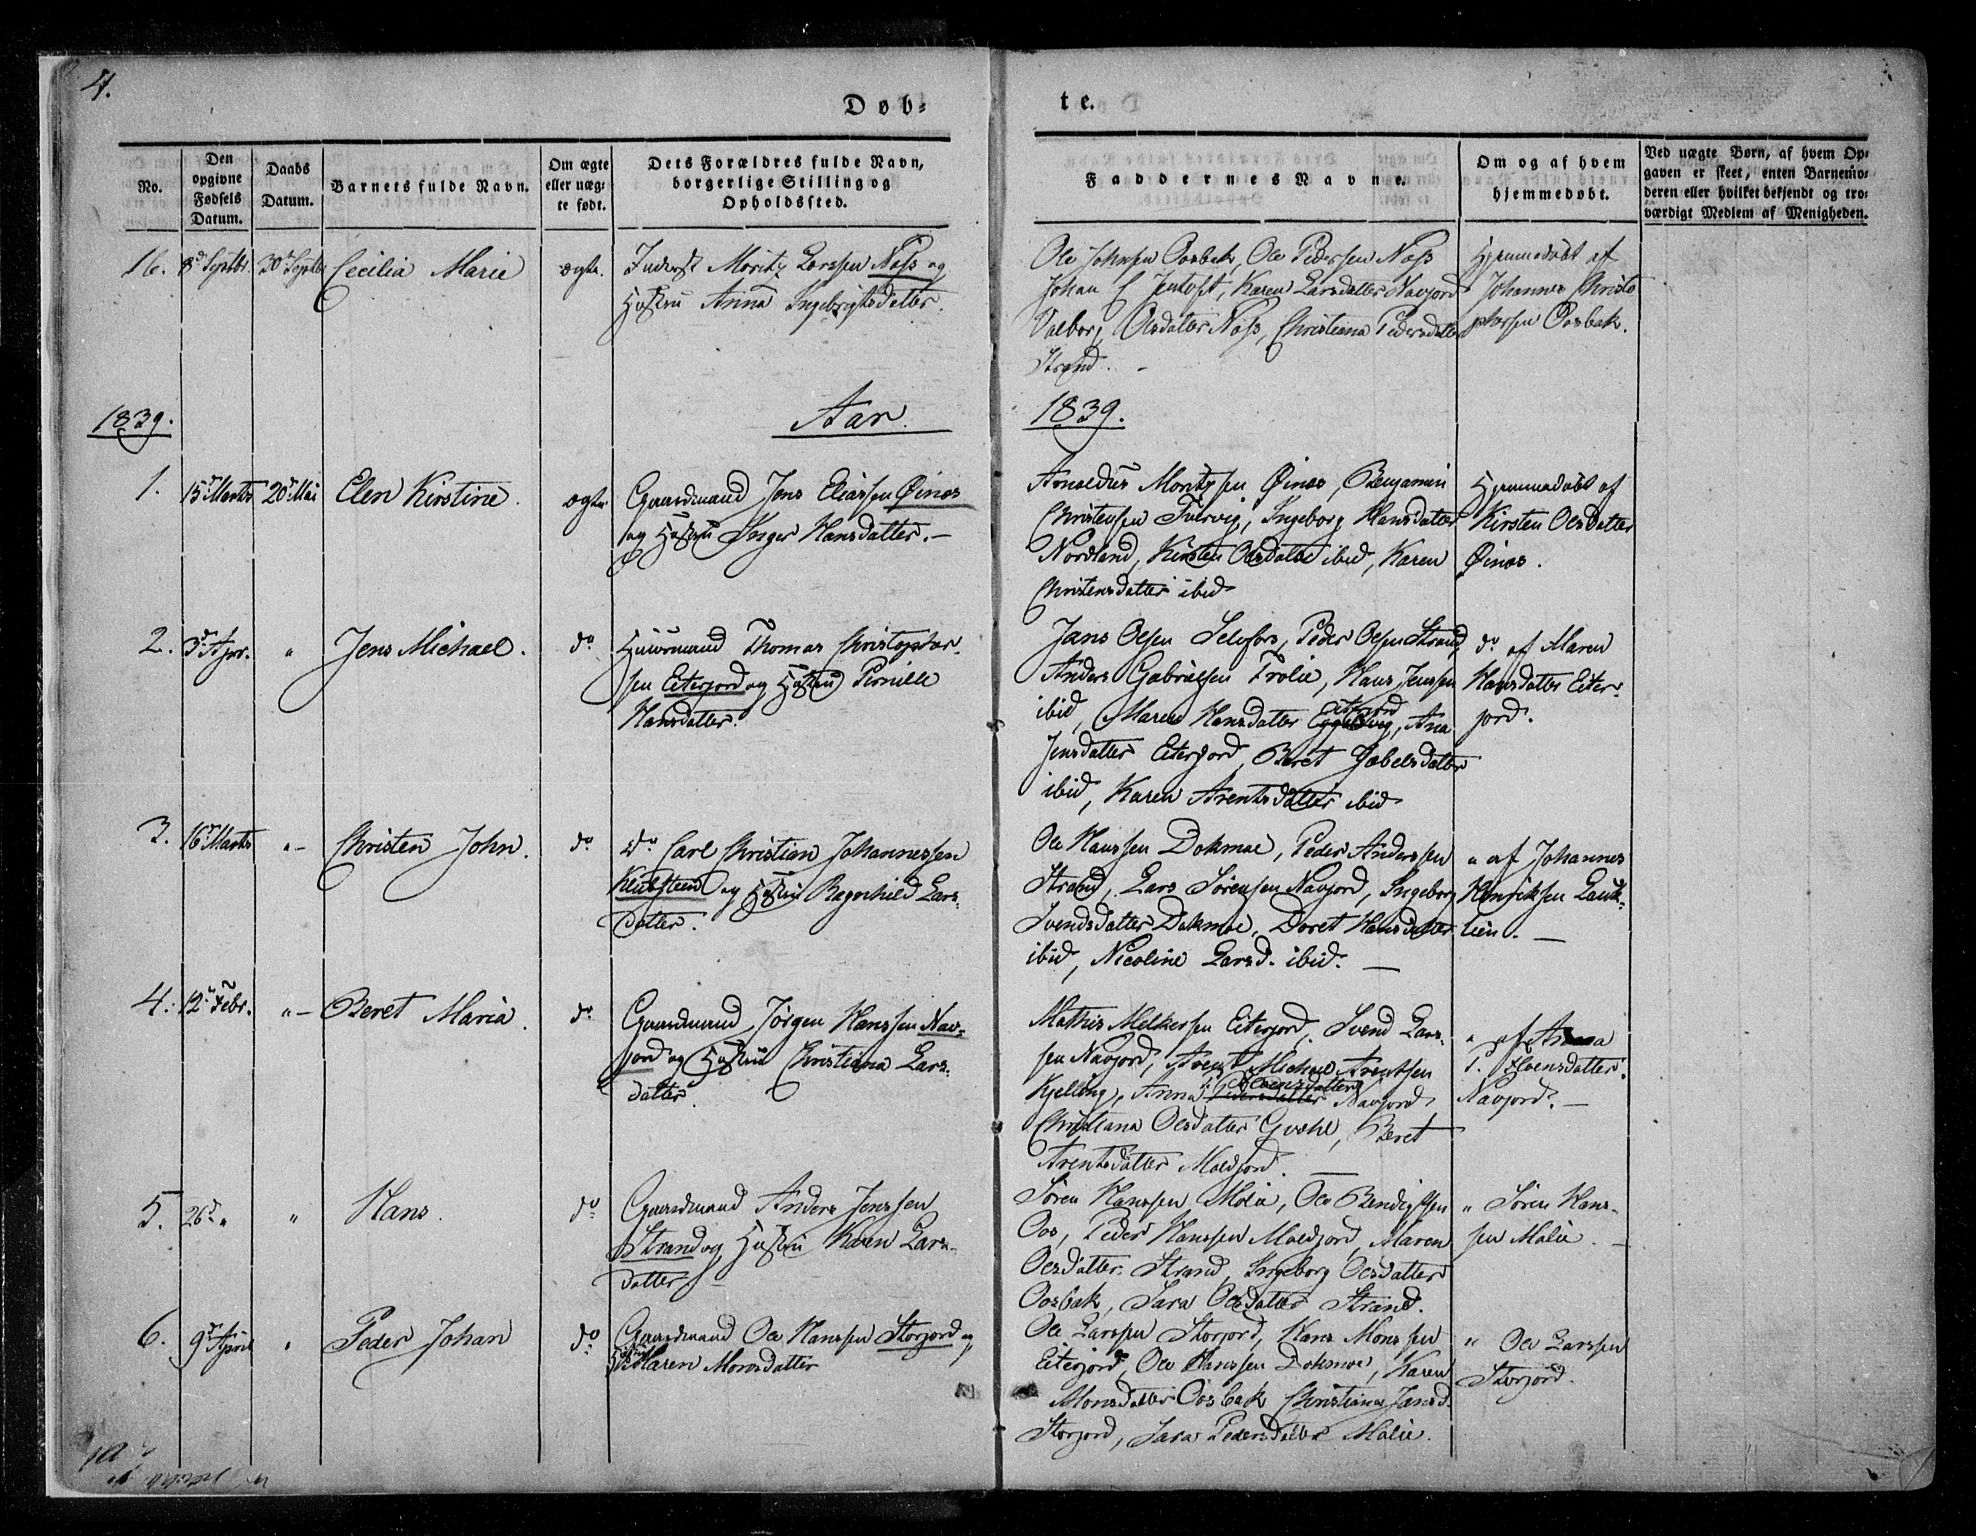 4.
Døb-
te.
No.
Den opgivne Fødsels Datum.
Daabs Datum.
Barnets fulde Navn.
Om ægte eller uægte født.
Dets Forældres fulde Navn, borgerlige Stilling og Opholdssted.
Faddernes Navne.
Om og af hvem hjemmedøbt.
Ved uægte Børn, af hvem Opgaven er skeet, enten Barnemoderen eller hvilket bekjendt og troværdigt Medlem af Menigheden.
16. 8d Septbr. 30 Septbr Cecilia Marie ægte. Inderst Moritz Larssen Næss og
Hustru Anna Ingebrigtsdatter.
Ole Johnsen Oosbak, Ole Pedersen Næss
Johan C Jentoft, Karen Larsdatter Navjord
Valborg Olsdatter Næss, Christiana Pedersdatter
Strand.
Hjemmedøbt af
Johannes Christo
phersen Oosbak.
1839. Aar. 1839.
1. 15 Marts 20 Mai Elen Kirstine. ægte Gaardmand Jens Eliassen Øinæs
og Hustru Inger Hansdatter.
Arnoldus Moritzsen Øinæs, Benjamin
Christensen Tvervig, Ingeborg Hansdatter
Nordland, Kirsten Olsdatter ibid, Karen
Christensdatter ibid
Hjemmedøbt af
Kirsten Olsdatter
Øinæs.
2. 3d Apr. " Jens Michael. do Huusmand Thomas Christopher-
sen Eiterjord og Hustru Pernille
Hansdatter.
Jans Olsen Selfors, Peder Olsen Strand,
Anders Gabrielsen Trolie, Hans Jenssen
ibid, Maren Hansdatter Eiterjord, Ana
Jensdatter Eiterjord, Beret Jæbelsdatter
ibid, Karen Arentsdatter ibid
do af Maren
Hansdatter Eiter-
jord.
3. 16 Marts "- Christen John. do do Carl Christian Johannessen
Klubsteen og Hustru Ragnhild Lars-
datter.
Ole Hanssen Dokmoe, Peder Anderssen
Strand, Lars Sørensen Navjord, Ingeborg
Svendsdatter Dokmoe, Doret Hansdatter
ibid, Nicoline Larsd. ibid.
" af Johannes
Henriksen
4. 12 Febr. "- Beret Maria. do Gaardmand Jørgen Hanssen Nav-
jord og Hustru Christiana Lars-
datter.
Mathis Melkersen Eiterjord, Svend Lars-
sen Navjord, Arent Michael Arentsen
Kjelling, Anna Navjord,
Christiana Olsdatter Beret
Arentsdatter Moldjord.
" af Anna
Navjord.
5. 26d " " Hans. do Gaardmand Anders Jenssen
Strand og Hustru Karen Lars-
datter.
Søren Hanssen Molie, Ole Bendigtsen
Oos, Peder Hanssen Moldjord, Maren
Olsdatter Strand, Ingeborg Olsdatter
Oosbak, Sara Olsdatter Strand.
" Søren Hans-
sen Molie.
6. 9d April " Peder Johan do Gaardmand Ole Hanssen Storjord og
Hustru Maren Monsdatter
Ole Larssen Storjord, Hans Monssen
Eiterjord, Ole Hanssen Dokmoe, Karen
Monsdatter Oosbak Christiana Jansd.
Storjord, Sara Pedersdatter Molie.
" Ole Larssen
Storjord.